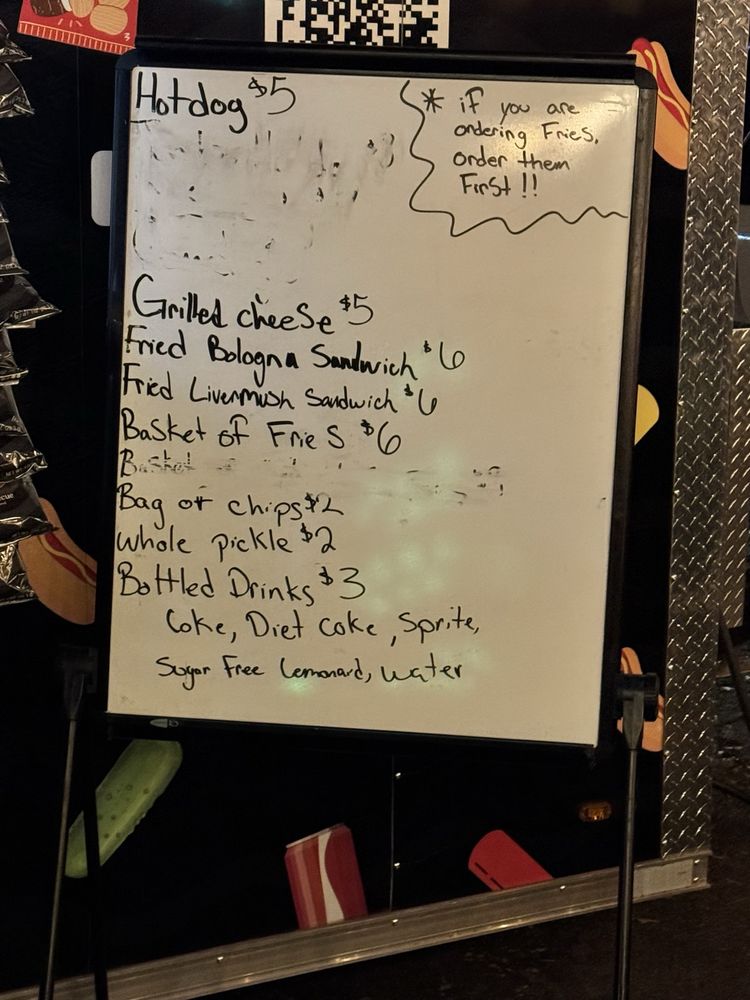 Hotdog $5
* if you are
ordering Fries,
order them
First !!
Grilled cheese $5
Fried Bologna Sandwich $6
Fried Livermush Sandwich $6
Basket of Fries $6
Basket
Bag of chips $2
whole pickle $2
Bottled Drinks $3
Coke, Diet coke, Sprite,
Sugar Free Lemonard, water